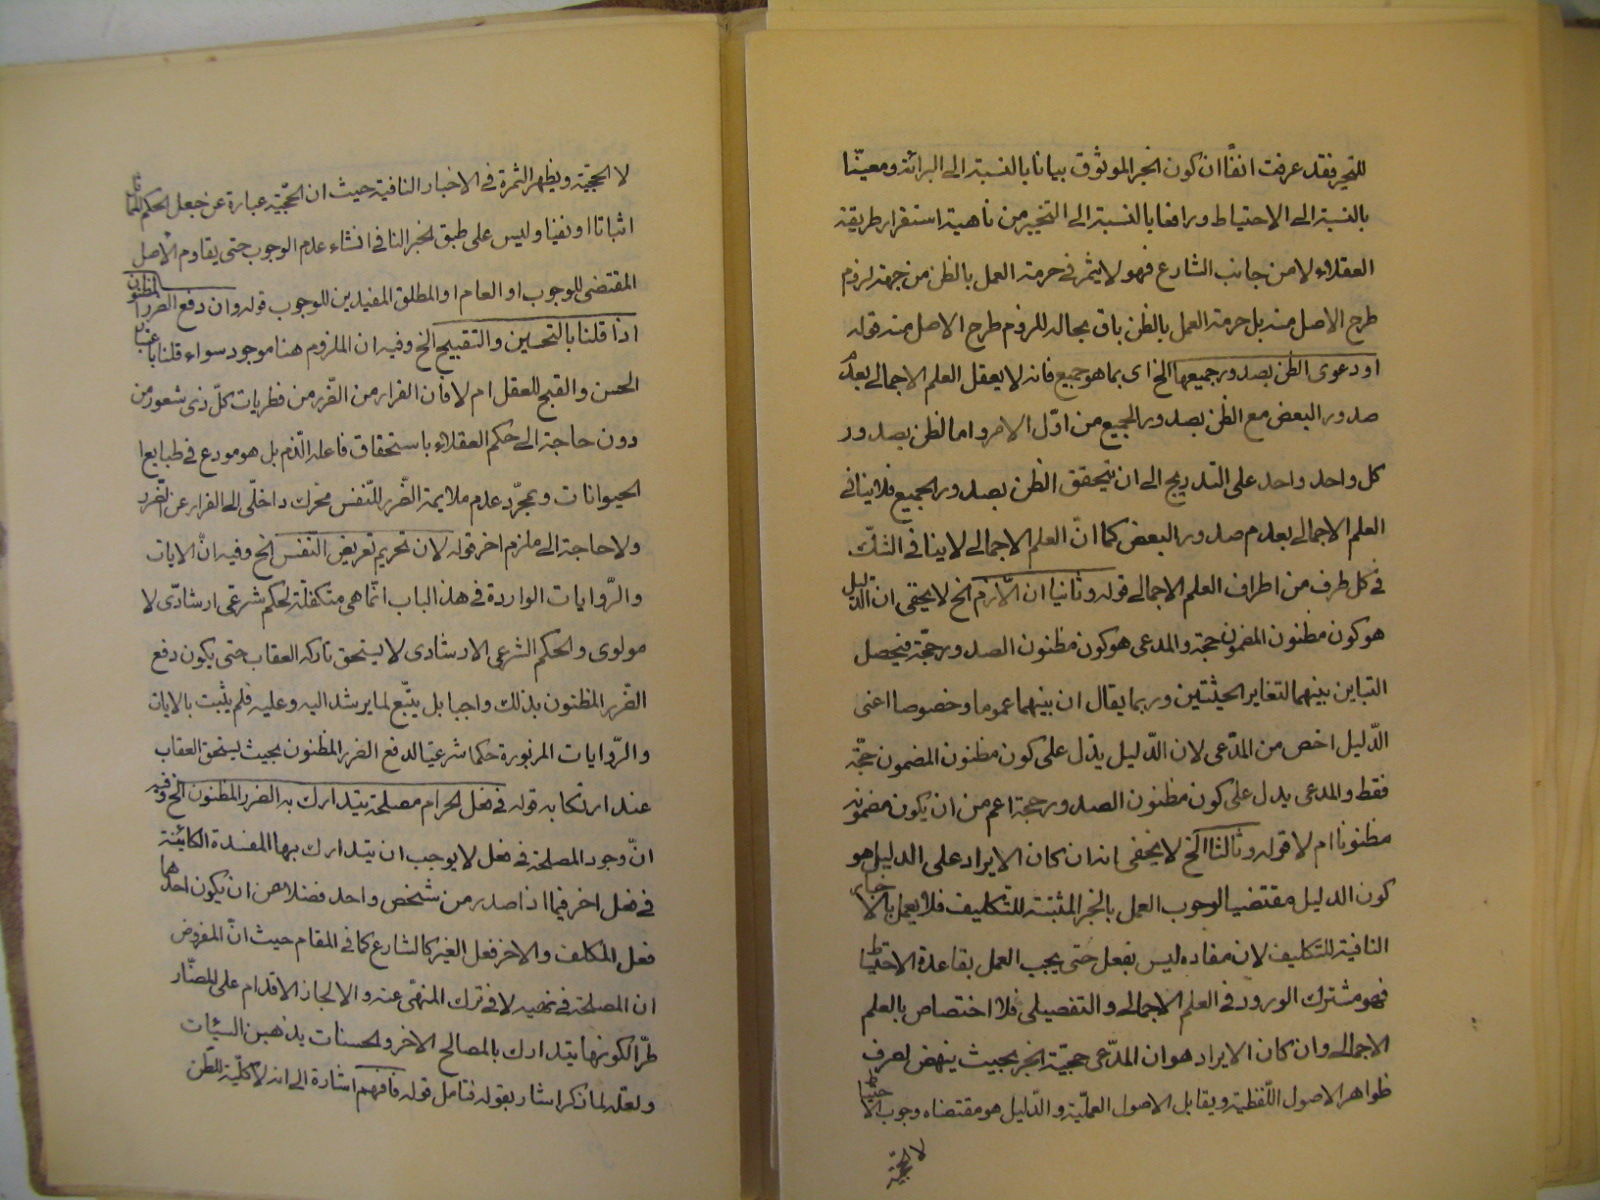 للتخير فقد عرفت انفًا ان كون الخبر الموثوق بيانا بالنسبة الى البرائة ومعيّنا
بالنسبة الى الاحتياط ورافعا بالنسبة الى التخيير من ناهية استقرار طريقة
العقلاء لا من جانب الشارع فهو لا يثمر فى حرمة العمل بالظن من جهة لزوم
طرح الاصل منه بل حرمة العمل بالظن باق بحاله للزوم طرح الاصل منه قوله
او دعوى الظن بصدور جميعها الخ اى بما هو جميع فانه لا يعقل العلم الاجمالى بعدم
صدور البعض مع الظن بصدور الجميع من اوّل الامر واما لظن بصدور
كل واحد واحد على التدريج الى ان يتحقق الظن بصدور الجميع فلا ينافى
العلم الاجمالى بعدم صدور البعض كما انّ العلم الاجمالى لا ينافى الشكّ
فى كل طرف من اطراف العلم الاجمالى قوله وثانيا ان اللّازم الخ لا يخفى ان الدّليل
هو كون مظنون المضمون حجة والمدعى هو كون مظنون الصدور حجّة فيحصل
التباين بينهما لتغاير الحيثتين وربما يقال ان بينهما عموما وخصوصا اعنى
الدّليل اخص من المدّعى لان الدّليل يدّل على كون مظنون المضمون حجّة
فقط والمدعى يدل على كون مظنون الصدور حجة اعم من ان يكون مضمونه
مظنونا ام لا قوله وثالثا الخ لا يخفى انه ان كان الايراد على الدليل هو
كون الدليل مقتضيا لوجوب العمل بالخبر المثبتة للتّكليف فلا يعمل بالاخبار
النافية للتّكليف لان مفاده ليس بفعل حتى يجب العمل بقاعدة الاحتياط
فهو مشترك الورود فى العلم الاجمالى والتفصيلى فلا اختصاص بالعلم
الاجمالى وان كان الايراد هو ان المدّعى حجيّة الخبر بحيث ينهض لصرف
ظواهر الاصول اللّفظية ويقابل الاصول العمليّة والدّليل هو مقتضاه وجوب الاحتياط
لا الحجيّة
لا الحجيّة ويظهر الثمرة فى الاخبار النافية حيث ان الحجّية عبارة عن جعل الحكم المماثل
اثباتا او نفيا وليس على طبق الخبر النافى انشاء عدم الوجوب حتى يقاوم الاصل
المقتضى للوجوب او العام او المطلق المفيدين للوجوب قوله وان دفع الضرر المظنون
اذا قلنا بالتحسين والتقبيح الخ وفيه ان الملزوم هنا موجود سواء قلنا باعتبار
الحسن والقبح للعقل ام لا فان الفرار من الضّرر من فطريات كلّ ذى شعور من
دون حاجة الى حكم العقلاء باستحقاق فاعله الذّم بل هو مودع فى طبايع
الحيوانات وبمجرّد عدم ملايمة الضّرر للنّفس محرك داخلّى الى الفرار عن الضّرر
ولا حاجة الى ملزم اخر قوله لان تحريم تعريض النفس الخ وفيه انّ الايات
والرّوايات الواردة فى هذ الباب انّما هى متكفّلة لحكم شرعّى ارشادّى لا
مولوى والحكم الشرعى الارشادى لا يستحق تاركه العقاب حتى يكون دفع
الضّرر المظنون بذلك واجبا بل يتبّع لما يرشد اليه وعليه فلم يثبت بالايات
والرّوايات المزبورة حكما شرعيّا لدفع الضرر المظنون بحيث يستحق العقاب
عند ارتكابه قوله فى فعل الحرام مصلحة يتدارك به الضرر المظنون الخ وفيه
انّ وجود المصلحة فى فعل لا يوجب ان يتدارك بها المفسدة الكائنة
فى فعل اخر فيما اذا صدر من شخص واحد فضلا عن ان يكون احدها
فعل المكلف والاخر فعل الغير كالشارع كما فى المقام حيث انّ المفروض
ان المصلحة فى نهيه لا فى ترك المنهّى عنه والا لجاز الاقدام على المضّار
طرّا لكونها يتدارك بالمصالح الاخر والحسنات يذهبن السيّئات
ولعلّه لما ذكر اشار بقوله فتامل قوله فافهم اشارة الى انه لا كليّة للظّن